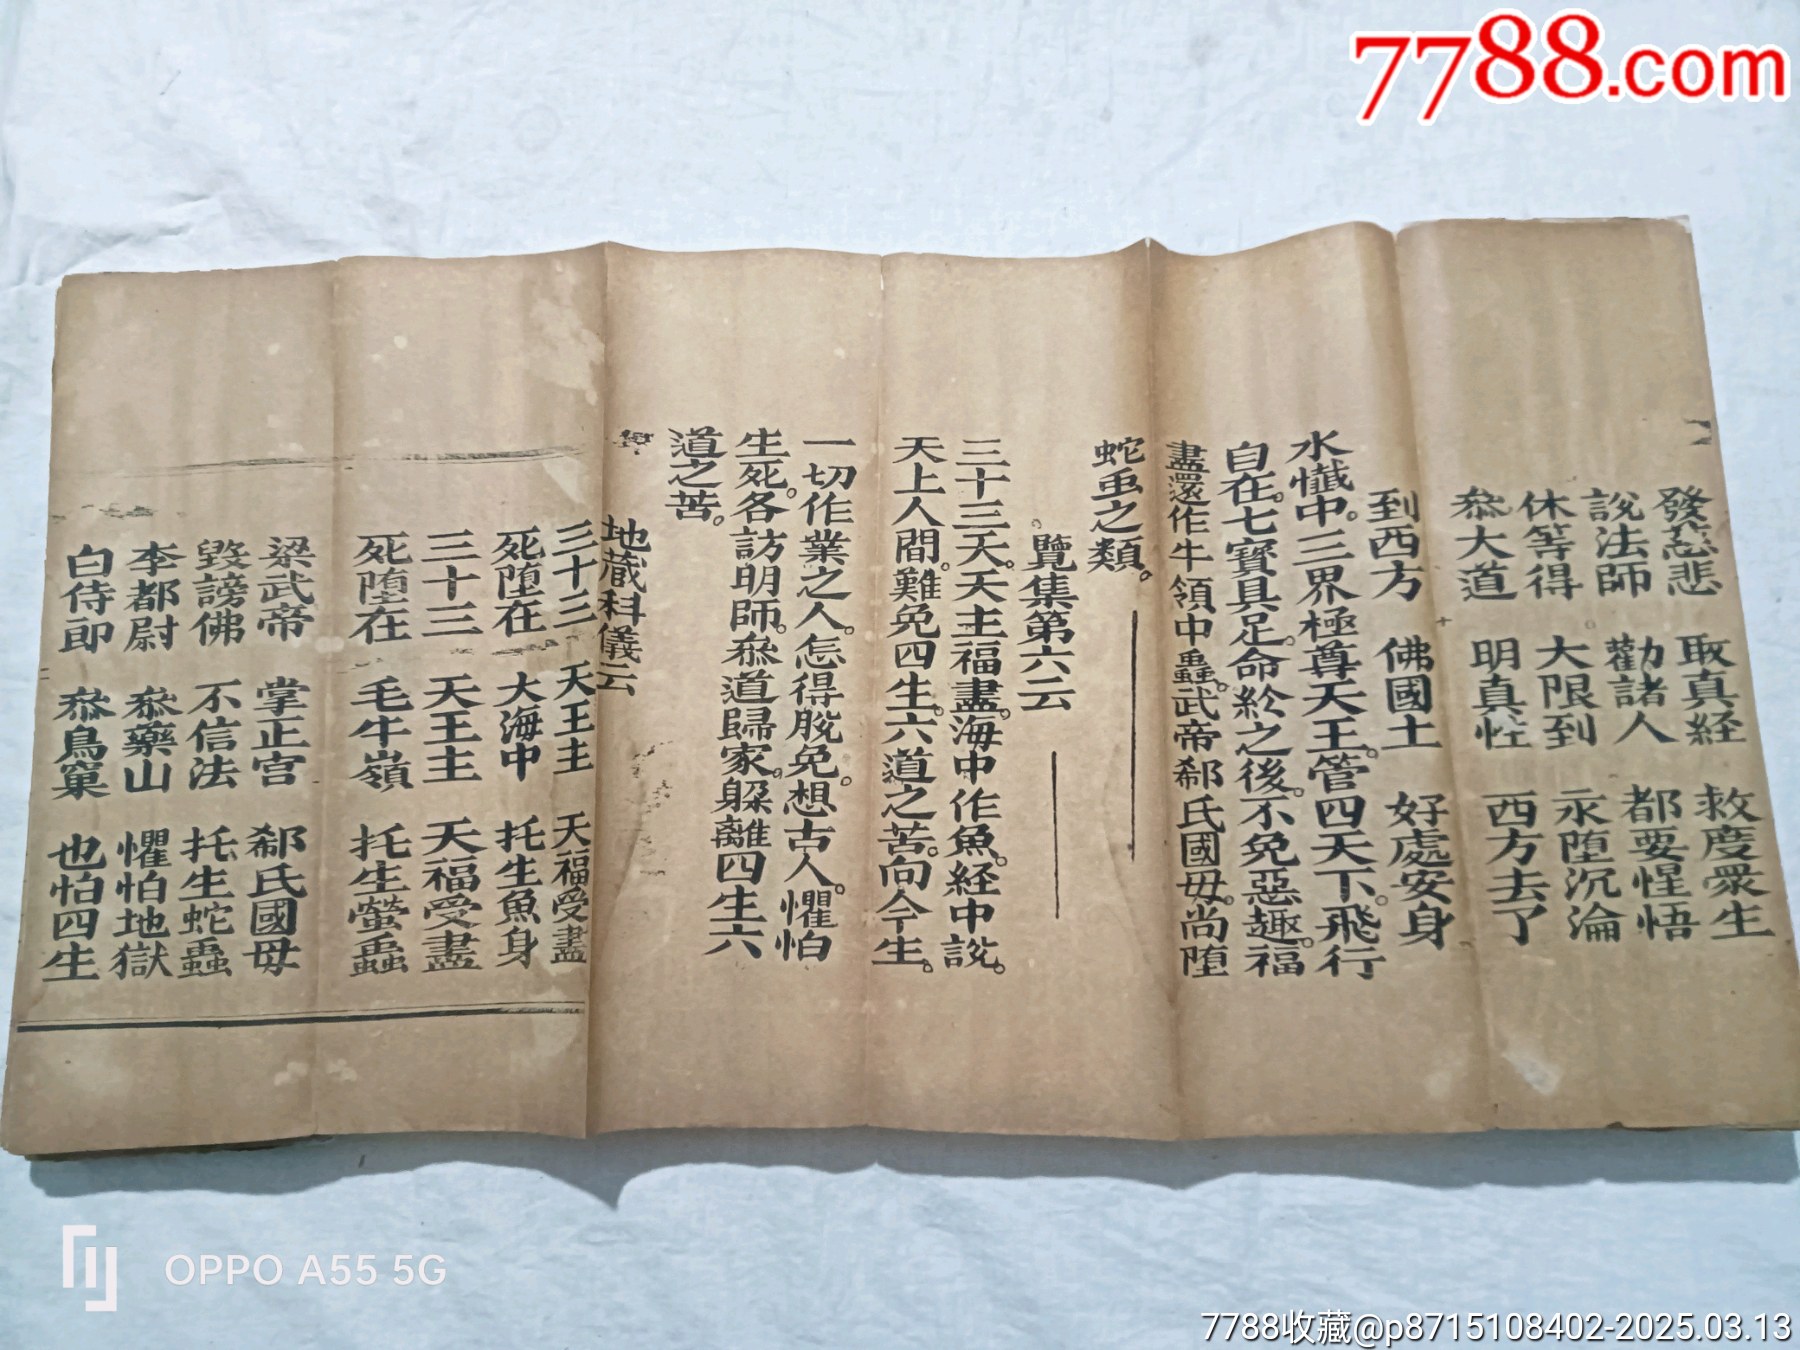 7788.com
發慈悲 取真経 救度衆生
說法師 勸諸人 都要惺悟
休等得 大限到 永堕沉淪
叅大道 明真性 西方去了
到西方 佛國土 好處安身
水懴中。三界極尊天王。管四天下。飛行
自在。七寳具足。命終之後。不免惡趣。福
盡還作牛領中䖝。武帝郗氏國母。尚堕
蛇䖝之類。
覽集第六云
三十三天。天主福盡。海中作魚。経中說。
天上人間。難免四生。六道之苦。向今生。
一切作業之人。怎得脫免。想古人。懼怕
生死。各訪明師。叅道歸家。躲離四生六
道之苦。
地藏科儀云
三十三 天王主 天福受盡
死堕在 大海中 托生魚身
三十三 天王主 天福受盡
死堕在 毛牛嶺 托生螢䖝
梁武帝 掌正宫 郗氏國母
毀謗佛 不信法 托生蛇䖝
李都尉 叅藥山 懼怕地獄
白侍郎 叅鳥窠 也怕四生
OPPO A55 5G
7788收藏@p8715108402-2025.03.13